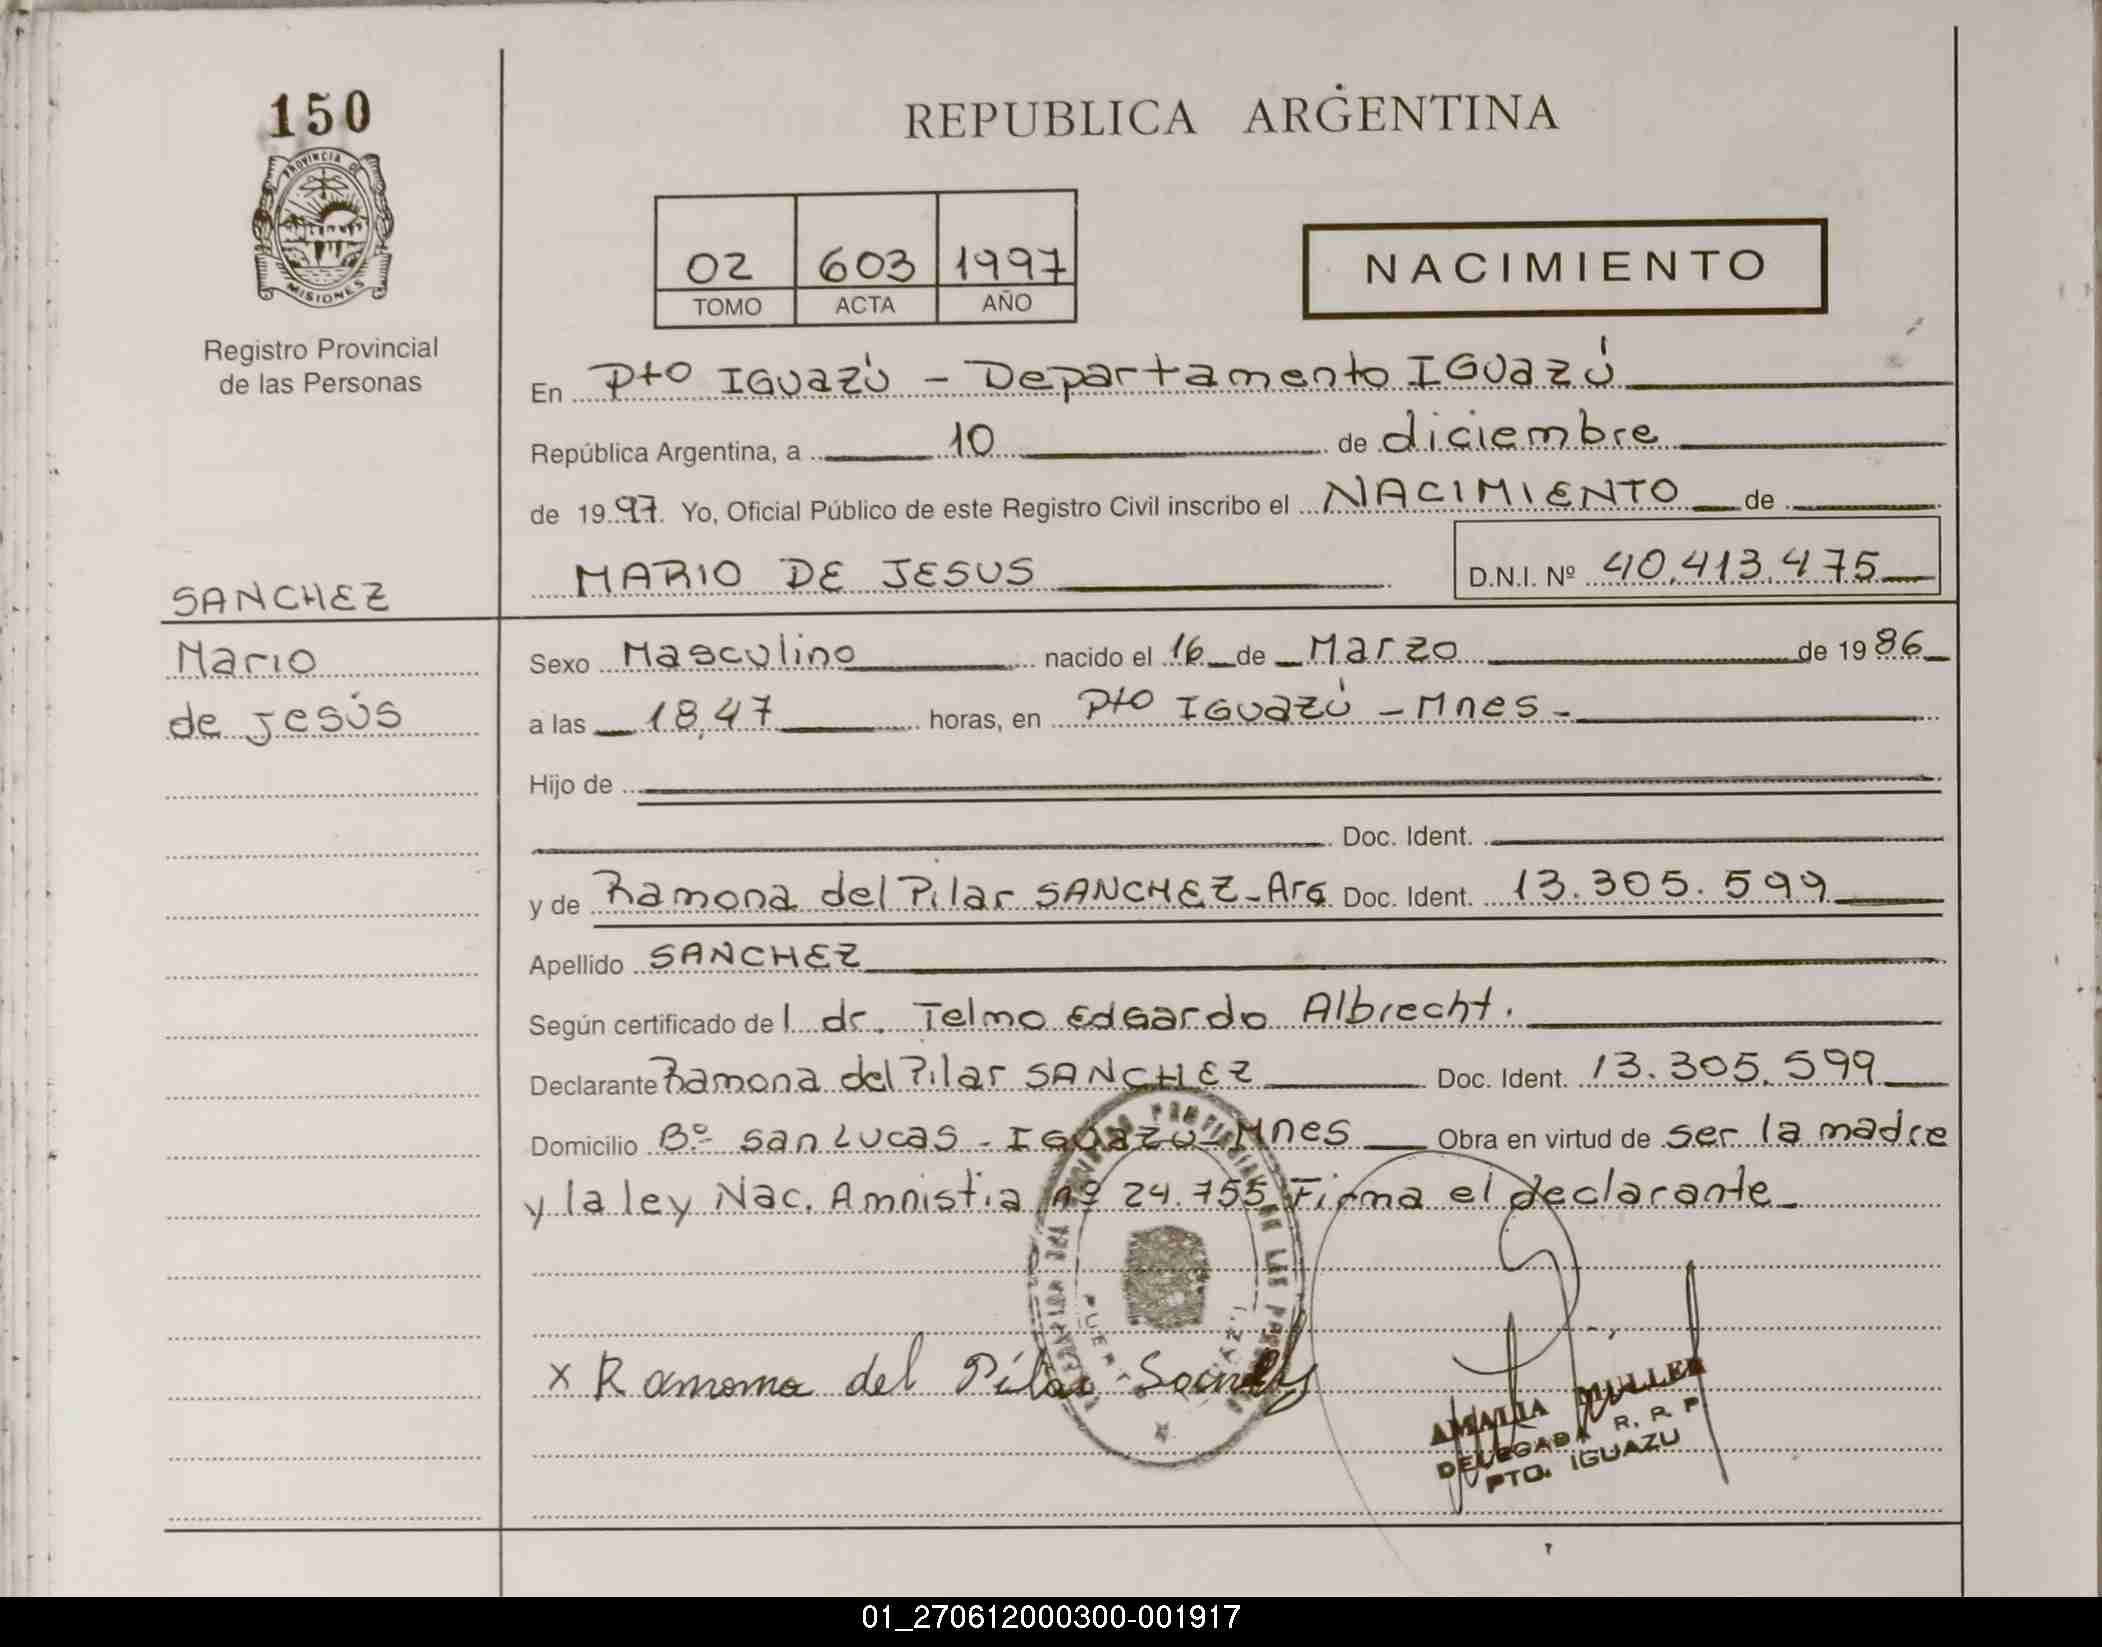 150
PROVINCIA DE
MISIONES
Registro Provincial
de las Personas
REPUBLICA ARGENTINA
02 603 1997
TOMO ACTA AÑO
NACIMIENTO
En Pto IGUazú - Departamento IGUazú
República Argentina, a 10 de diciembre
de 1997. Yo, Oficial Público de este Registro Civil inscribo el NACIMIENTO de
MARIO DE JESUS D.N.I. Nº 40.413.475
SANCHEZ
Mario
de Jesús
Sexo Masculino nacido el 16 de Marzo de 1986
a las 18,47 horas, en Pto IGUazú - Mnes -
Hijo de
Doc. Ident.
y de Ramona del Pilar SANCHEZ - Arg Doc. Ident. 13.305.599
Apellido SANCHEZ
Según certificado del dr. Telmo EdGardo Albrecht.
Declarante Ramona del Pilar SANCHEZ Doc. Ident. 13.305.599
Domicilio Bº San Lucas - IGUazú - Mnes Obra en virtud de ser la madre
y la ley Nac. Amnistia nº 24.755 Firma el declarante
x Ramona del Pilar
AMALIA MULLER
DELEGADA R. R. P.
PTO. IGUAZU
01_270612000300-001917